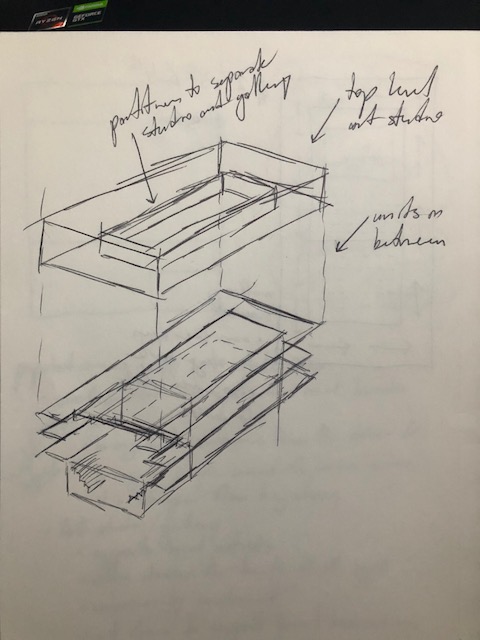 RYZEN
GEFORCE
GTX
partitions to separate
studio and gallery
top level
art studio
units in
between